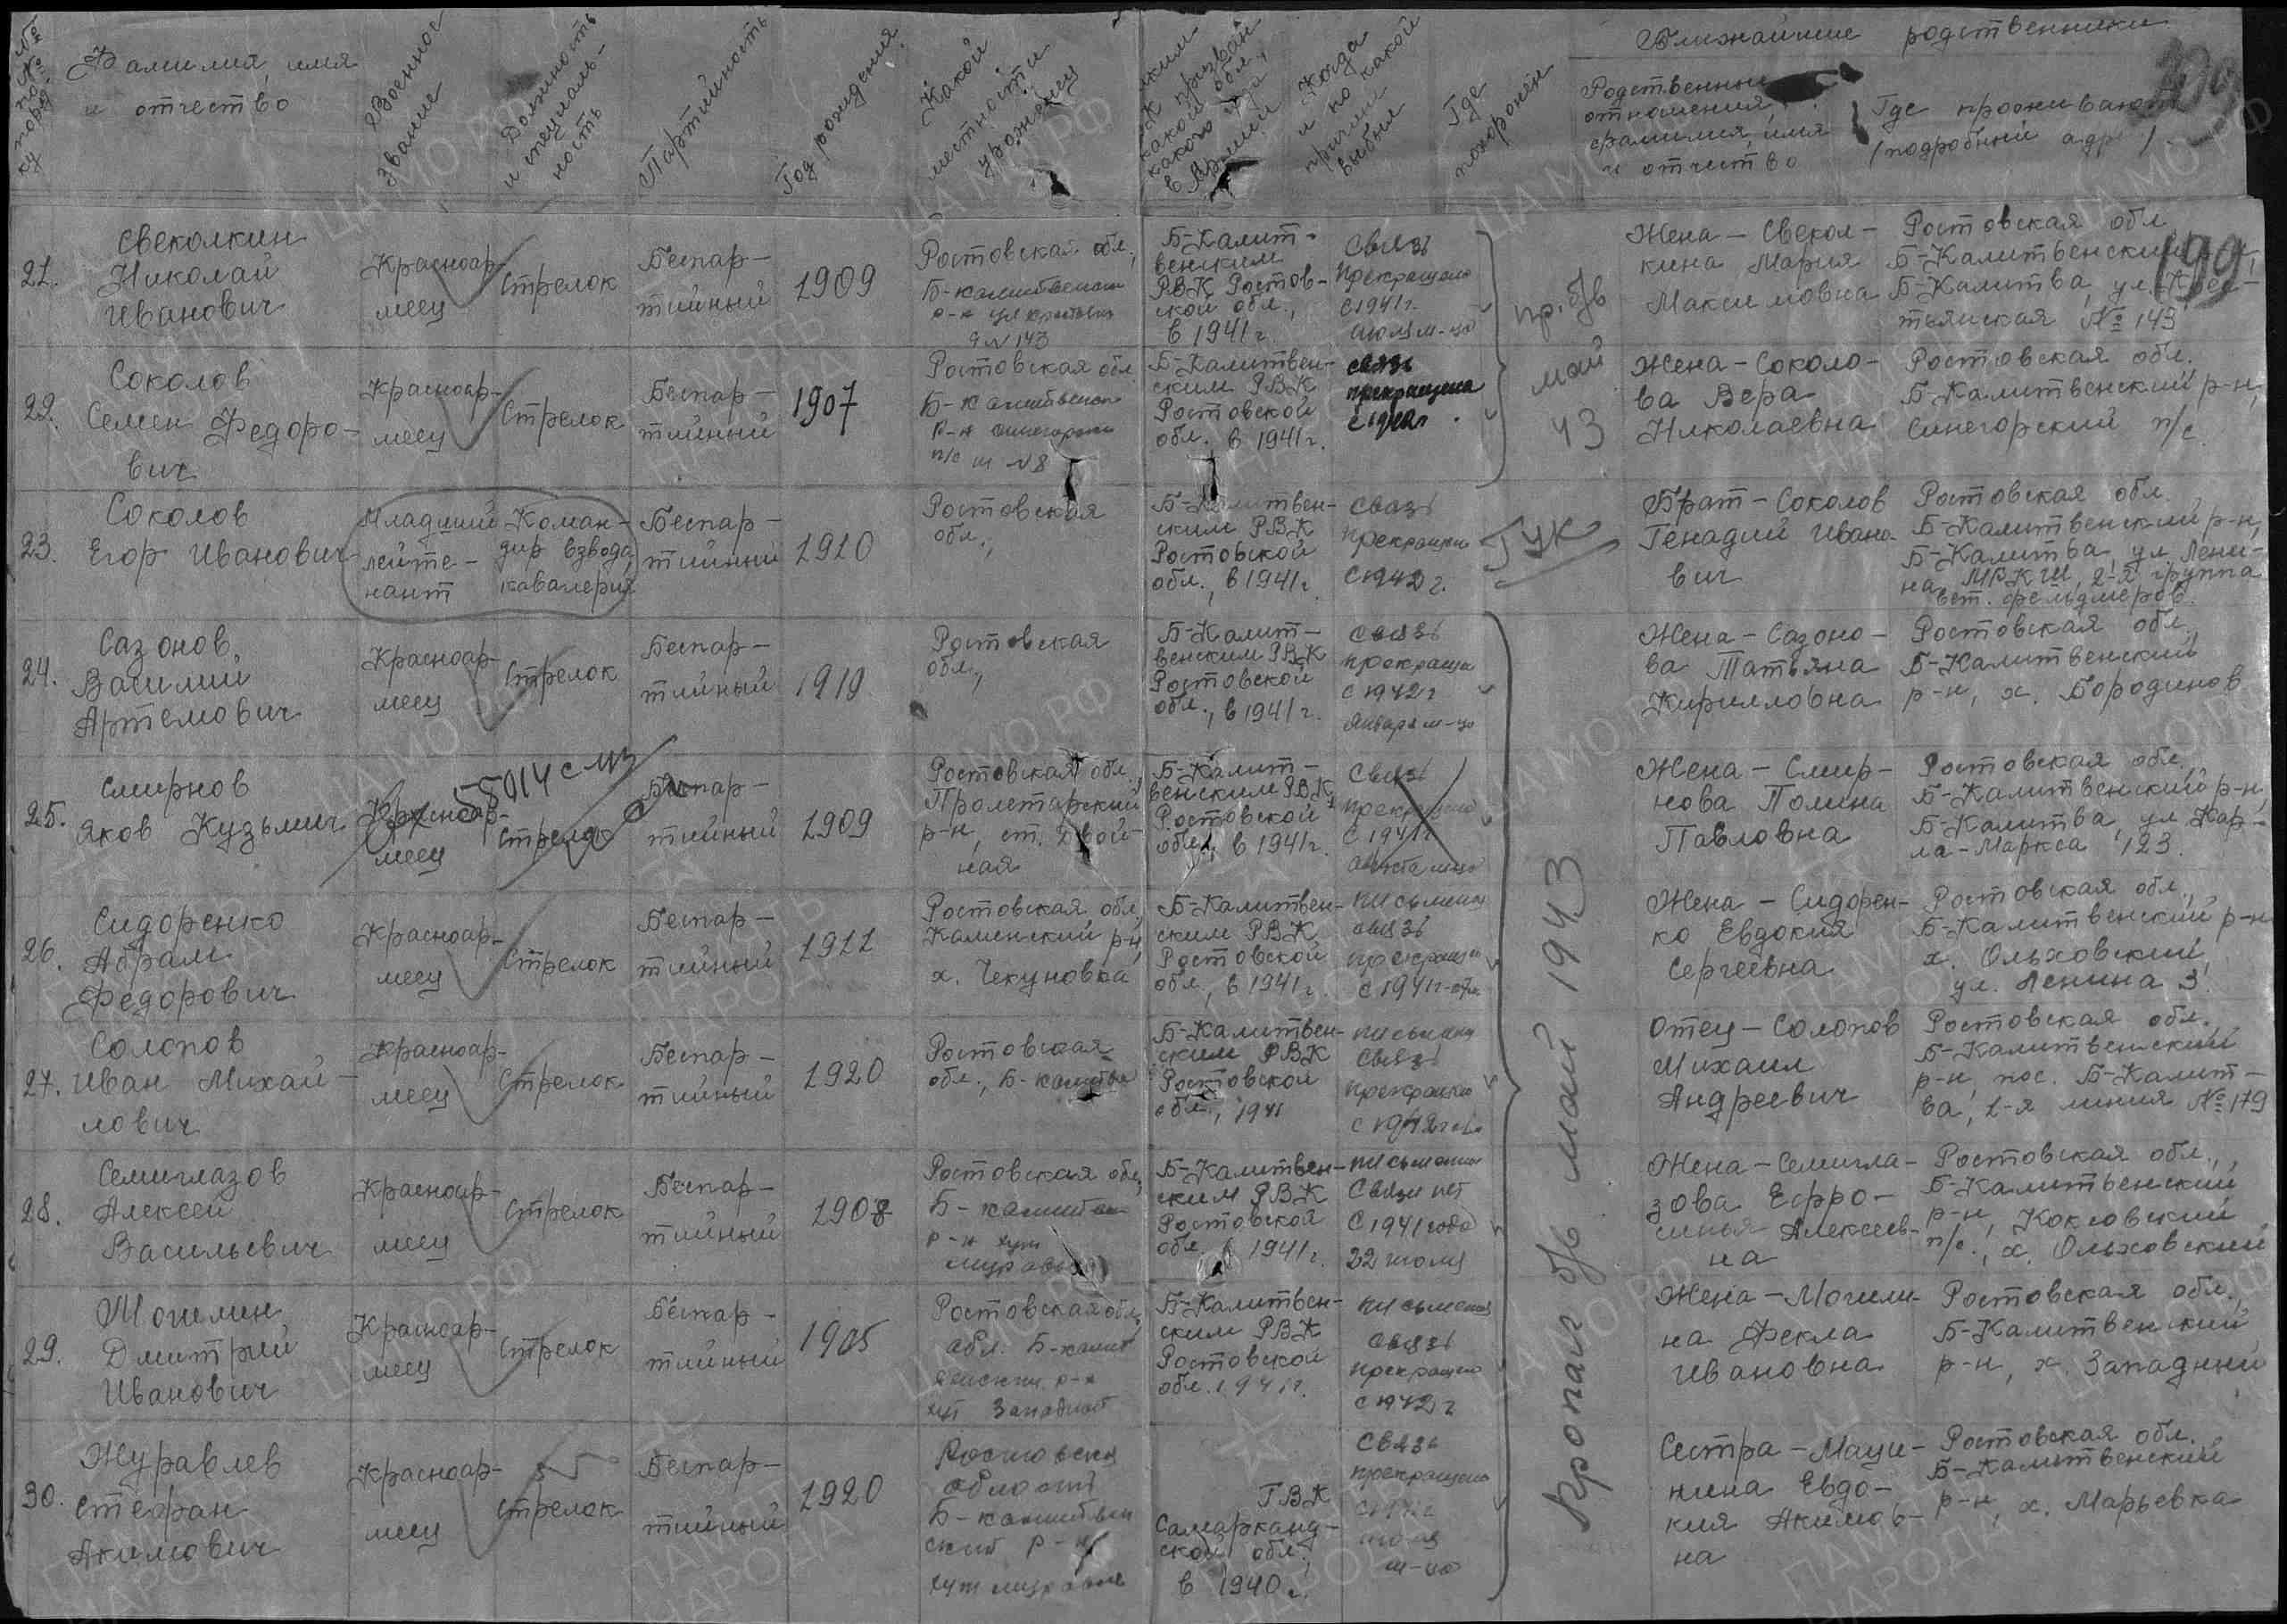 №№ по порядку
Фамилия, имя и отчество
Военное звание
Должность и специальность
Партийность
Год рождения
Какой местности уроженец
Каким РВК призван какой обл, какого года в Армии
Когда и по какой причине выбыл
Где похоронен
Ближайшие родственники
Родственные отношения, фамилия, имя и отчество
Где проживают (подробный адрес)
199
21.
Свеколкин
Николай
Иванович
Красноар-
меец
Стрелок
Беспар-
тийный
1909
Ростовская обл.,
Б-Калитвенский
р-н
143
Б-Калит-
венским
РВК Ростов-
ской обл.,
в 1941 г.
Связь
прекращена
с 1941 г.
Жена – Свекол-
кина Мария
Максимовна
Ростовская обл.
Б-Калитвенский
Б-Калитва, ул. Крес-
тьянская №143
пр. б/в
май
43
22.
Соколов
Семен Федоро-
вич
Красноар-
меец
Стрелок
Беспар-
тийный
1907
Ростовская обл.
Б-Калитвенский
р-н
п/с ш №8
Б-Калитвен-
ским РВК
Ростовской
обл. в 1941 г.
связь
прекращена
Жена – Соколо-
ва Вера
Николаевна
Ростовская обл.
Б-Калитвенский р-н,
Синегорский п/с.
23.
Соколов
Егор Иванович
Младший
лейте-
нант
Коман-
дир взвода,
кавалерия
Беспар-
тийный
1910
Ростовская
обл.,
Б-Калитвен-
ским РВК
Ростовской
обл., в 1941 г.
Связь
прекращена
с 1942 г.
ГУК
Брат – Соколов
Генадий Ивано-
вич
Ростовская обл.
Б-Калитвенский р-н,
Б-Калитва, ул. Лени-
на, 2-я группа
вет. фельдшеров.
24.
Сазонов
Василий
Артемович
Красноар-
меец
Стрелок
Беспар-
тийный
1919
Ростовская
обл.,
Б-Калит-
венским РВК
Ростовской
обл., в 1941 г.
связь
прекращена
с 1942 г
января м-ца
Жена – Сазоно-
ва Татьяна
Кирилловна
Ростовская обл.,
Б-Калитвенский
р-н, х. Бородинов
25.
Смирнов
Яков Кузьмич
Красноар-
меец
Стрелок
Беспар-
тийный
1909
Ростовская обл.,
Пролетарский
р-н, ст. Двой-
ная
Б-Калит-
венским РВК
Ростовской
обл., в 1941 г.
Связь
прекращена
с 1941 г.
августа м-ца
Жена – Смир-
нова Полина
Павловна
Ростовская обл.,
Б-Калитвенский р-н,
Б-Калитва, ул. Кар-
ла-Маркса 123.
26.
Сидоренко
Абрам
Федорович
Красноар-
меец
Стрелок
Беспар-
тийный
1911
Ростовская обл.,
Каменский р-н,
х. Чекуновка
Б-Калитвен-
ским РВК
Ростовской
обл., в 1941 г.
письменая
связь
прекращена
Жена – Сидорен-
ко Евдокия
Сергеевна
Ростовская обл.,
Б-Калитвенский р-н
х. Ольховский,
ул. Ленина 3.
27.
Солопов
Иван Михай-
лович
Красноар-
меец
Стрелок
Беспар-
тийный
1920
Ростовская
обл., Б-Калитва
Б-Калитвен-
ским РВК
Ростовской
обл., 1941
письменая
связь
прекращена
Отец – Солопов
Михаил
Андреевич
Ростовская обл.,
Б-Калитвенский
р-н, пос. Б-Калит-
ва, 1-я линия №179
28.
Семиглазов
Алексей
Васильевич
Красноар-
меец
Стрелок
Беспар-
тийный
1908
Ростовская обл.,
Б-Калитвен
р-н хут
Б-Калитвен-
ским РВК
Ростовской
обл. в 1941 г.
письменая
Связи нет
с 1941 года
Жена – Семигла-
зова Ефро-
синья Алексеев-
на
Ростовская обл.,
Б-Калитвенский
р-н, Коксовский
п/с., х. Ольховский
29.
Могилин
Дмитрий
Иванович
Красноар-
меец
Стрелок
Беспар-
тийный
1905
Ростовская обл.,
обл. Б-калит
р-н
хут Западный
Б-Калитвен-
ским РВК
Ростовской
обл. 1941 г.
письменая
связь
прекращена
с 1942 г
Жена – Могили-
на Фекла
Ивановна
Ростовская обл.,
Б-Калитвенский
р-н, х. Западный
30.
Журавлев
Стефан
Акимович
Красноар-
меец
Стрелок
Беспар-
тийный
1920
Ростовская
область
Б-калитвен
ский р-н
хут
ГВК
Самарканд-
ской обл.,
в 1940 г.
Связь
прекращена
м-ца
Сестра – Маци-
нина Евдо-
кия Акимов-
на
Ростовская обл.
Б-Калитвенский
р-н, х. Марьевка
Пропал б/в май 1943
ЦАМО РФ
ПАМЯТЬ НАРОДА